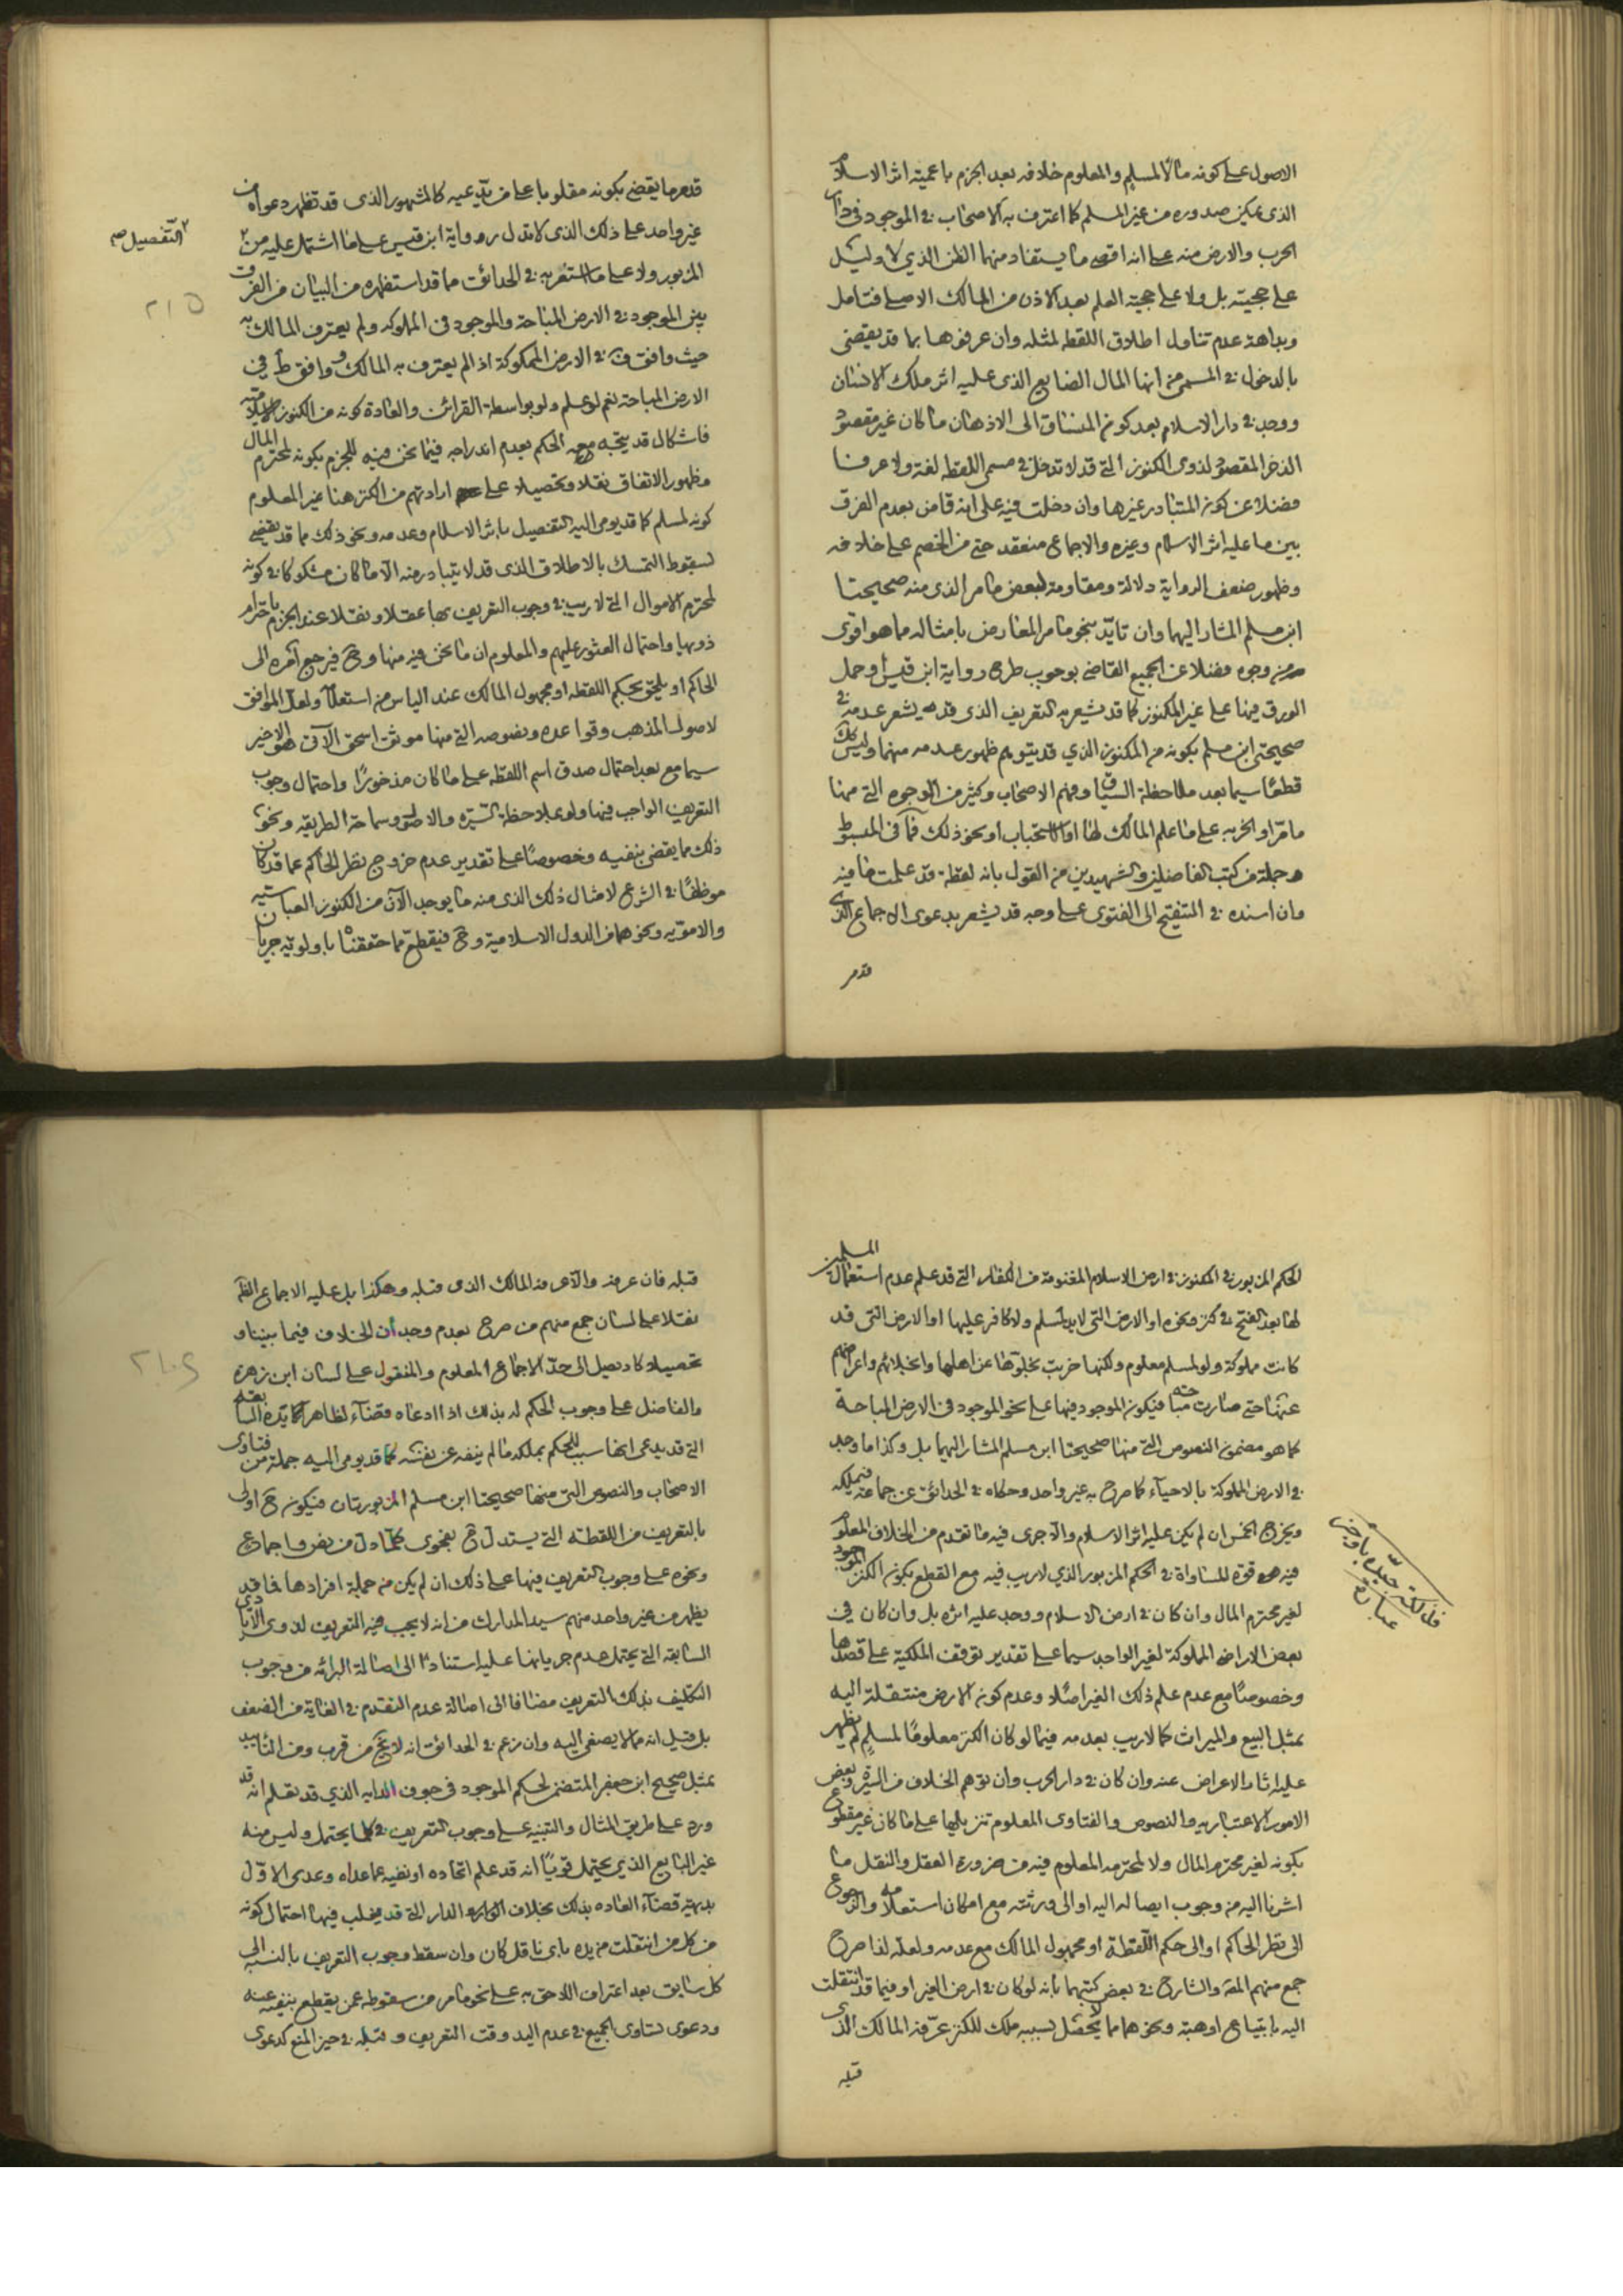 الاصول على كونه مالا لمسلم والمعلوم خلافه بعد الجزم باعمية اثر الاسلام
الذى يمكن صدوره من غير المسلم كما اعترف به الاصحاب فى الموجود فى دار
الحرب والارض منه على انه اقصى ما يستفاد منها الظن الذي لا دليل
على حجيته بل ولا على حجية العلم بعد الاذن من المالك الاصلى فتامل
وبداهة عدم تناول اطلاق اللقطه لمثله وان عرفوها بما قد يقضى
بالدخول فى المسمى من انها المال الضايع الذى عليه اثر ملك الانسان
ووجد فى دار الاسلام بعد كون المنساق الى الاذهان ما كان غير مقصود
الذخر المقصود لذوى الكنوز التى قد لا تدخل فى مسمى اللقطه لغة ولا عرفا
فضلا عن كون المتبادر غيرها وان دخلت فيه على انه قاض بعدم الفرق
بين ما عليه اثر الاسلام وغيره والاجماع منعقد حتى من الخصم على خلافه
وظهور ضعف الرواية دلالة ومقاومة لبعض ما مر الذى منه صحيحتا
ابن مسلم المشار اليهما وان تايد بنحو ما مر المعارض بامثاله مما هو اقوى
من وجوه فضلا عن الجميع القاضى بوجوب طرح رواية ابن قيس او حمل
الورق فيها على غير المكنوز كما قد يشعر به التعريف الذى قد يشعر عدمه فى
صحيحتى ابن مسلم بكونه من المكنوز الذي قد يتوهم ظهور عدمه منهما وليس كك
قطعا سيما بعد ملاحظة السياق وفهم الاصحاب وكثير من الوجوه التى منها
ما مر او الخربه على ما علم المالك لها او الاستحباب او نحو ذلك فما فى المبسوط
وجلة من كتب الفاضلين والشهيدين من القول بانه لقطة قد علمت ما فيه
وان اسنده فى التنقيح الى الفتوى على وجه قد يشعر بدعوى الاجماع الذى
قدمر
قدمر ما يقضى بكونه مقلوبا على من يدعيه كالمشهور الذى قد تظهر دعواه من
غير واحد على ذلك الذى لا تدل رواية ابن قيس على ما اشتمل عليه من
التفصيل صح
المزبور ولا على ما استقربه فى الحدائق مما قد استظهره من البيان من الفرق
بين الموجود فى الارض المباحة والموجود فى المملوكه ولم يعترف المالك به
حيث وافق ف فى الارض المملوكة اذا لم يعترف به المالك ووافق ط فى
الارض المباحة نعم لو علم ولو بواسطة القرائن والعادة كونه من الكنوز الاسلاميه
فاشكال قد يتجه معه الحكم بعدم اندراجه فيما نحن فيه للجزم بكونه لمحترم المال
وظهور الاتفاق نقلا وتحصيلا على ارادتهم من الكنز هنا غير المعلوم
كونه لمسلم كما قد يومى اليه التفصيل باثر الاسلام وعدمه ونحو ذلك مما قد يقضى
لسقوط التمسك بالاطلاق الذى قد لا يتبادر منه الا ما كان مشكوكا فى كونه
لمحترم الاموال التى لا ريب فى وجوب التعريف بها عقلا ونقلا عند الجزم باحترام
ذويها واحتمال العثور عليهم والمعلوم ان ما نحن فيه منها وح فيرجع امره الى
الحاكم او يلحق بحكم اللقطه او مجهول المالك عند الياس من استعلامه ولعل الموافق
لاصول المذهب وقواعده ونصوصه التى منها موثق اسحق الآتى هو الاخير
سيما مع بعد احتمال صدق اسم اللقطه على ما كان مذخورا واحتمال وجوب
التعريف الواجب فيها ولو بملاحظة السيره والاصل وسماحة الطريقه ونحو
ذلك مما يقضى بنفيه وخصوصا على تقدير عدم خروج نظر الحاكم عما قد كان
موظفا فى الشرع لامثال ذلك الذى منه ما يوجد الآن من الكنوز العباسيه
والامويه ونحوهما من الدول الاسلامية وح فيقطع مما حققنا باولويه جريان
الحكم المزبور فى المكنوز فى ارض الاسلام المغنومة من الكفار التى قد علم عدم استعمال المسلمين
لها بعد الفتح فى كنز ونحوه او الارض التى لا يد لمسلم ولا كافر عليها او الارض التى قد
كانت مملوكة ولو لمسلم معلوم ولكنها خربت بخلوها عن اهلها وانجلائهم واعراضهم
عنها حتى صارت مباحه فيكون الموجود فيها على نحو الموجود فى الارض المباحة
كما هو مضمون النصوص التى منها صحيحتا ابن مسلم المشار اليهما بل وكذا ما وجد
فى الارض المملوكة بالاحياء كما صرح به غير واحد وحكاه فى الحدائق عن جماعة فيملكه
ويخرج الخمس ان لم يكن عليه اثر الاسلام والا جرى فيه ما تقدم من الخلاف المعلوم
فيه قوة المساواة فى الحكم المزبور الذي لا ريب فيه مع القطع بكون الكنز الموجود
لغير محترم المال وان كان فى ارض الاسلام ووجد عليه اثره بل وان كان فى
فذلكة جيدة باوجز
عبارة
بعض الاراضى المملوكة لغير الواجد سيما على تقدير توقف الملكية على قصدها
وخصوصا مع عدم علم ذلك الغير اصلا وعدم كون الارض منتقلة اليه
بمثل البيع والميراث كما لا ريب بعدمه فيما لو كان الكنز معلوما لمسلم لم يظهر
عليه اثار الاعراض عنه وان كان فى دار الحرب وان توهم الخلاف من السيرة وبعض
الامور الاعتباريه والنصوص والفتاوى المعلوم تنزيلها على ما كان غير مقطوع
بكونه لغير محترم المال ولا لمحترمه المعلوم فيه من ضرورة العقل والنقل ما
اشرنا اليه من وجوب ايصاله اليه او الى ورثته مع امكان استعلامه والرجوع
الى نظر الحاكم او الى حكم اللقطة او مجهول المالك مع عدمه ولعله لذا صرح
جمع منهم المص والشارح فى بعض كتبهما بانه لو كان فى ارض الغير او فيما قد انتقلت
اليه بابتياع او هبة ونحوهما مما لا يحصل بسببه ملك للكنز عرفه المالك الذى
قبله
قبله فان عرفه والا عرفه المالك الذى قبله وهكذا بل عليه الاجماع
نقلا على لسان جمع منهم من صرح بعدم وجدان الخلاف فيما بيننا و
تحصيلا كاد يصل الى حد الاجماع المعلوم والمنقول على لسان ابن زهره
والفاضل على وجوب الحكم له بذلك اذا ادعاه قضاء لظاهر يده السابقه
التى قد يدعى انها سبب للحكم بملكه ما لم ينفه عن نفسه كما قد يومى اليه جملة من فتاوى
الاصحاب والنصوص التى منها صحيحتا ابن مسلم المزبورتان فيكون ح اولى
بالتعريف من اللقطه التى يستدل ح بفحوى كلما دل من نص واجماع
ونحوه على وجوب التعريف فيها على ذلك ان لم يكن من جملة افرادها فما قد
يظهر من غير واحد منهم سيد المدارك من انه لا يجب فيه التعريف لذوى الايدى
السابقه التى يحتمل عدم جريانها عليه استنادا الى اصالة البرائه من وجوب
التكليف بذلك التعريف مضافا الى اصالة عدم التقدم فى الغاية من الضعف
بل قيل انه مما لا يصغى اليه وان زعم فى الحدائق انه لا يخ من قرب ومن التاييد
بمثل صحيح ابن جعفر المتضمن لحكم الموجود فى جوف الدابه الذي قد نعلم انه قد
ورد على طريق المثال والتنبيه على وجوب التعريف فى كلما يحتمل وليس منه
غير البايع الذي يحتمل قويا انه قد علم اتحاده او نفيه عما عداه وعدى الاول
بديهة قضاء العاده بذلك بخلاف الدار التى قد يغلب فيها احتمال كونه
من كل من انتقلت من يده باى ناقل كان وان سقط وجوب التعريف بالنسبه الى
كل سابق بعد اعتراف اللاحق به على نحو ما مر من سقوطه عمن يقطع بنفيه عنه
ودعوى تساوى الجميع فى عدم اليد وقت التعريف وقبله فى حيز المنع كدعوى